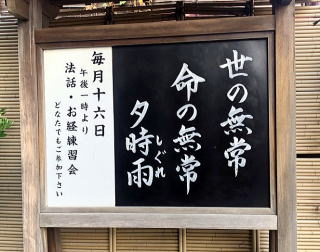 世の無常
命の無常
夕時雨
しぐれ
毎月十六日
午後一時より
法話・お経練習会
どなたでもご参加下さい